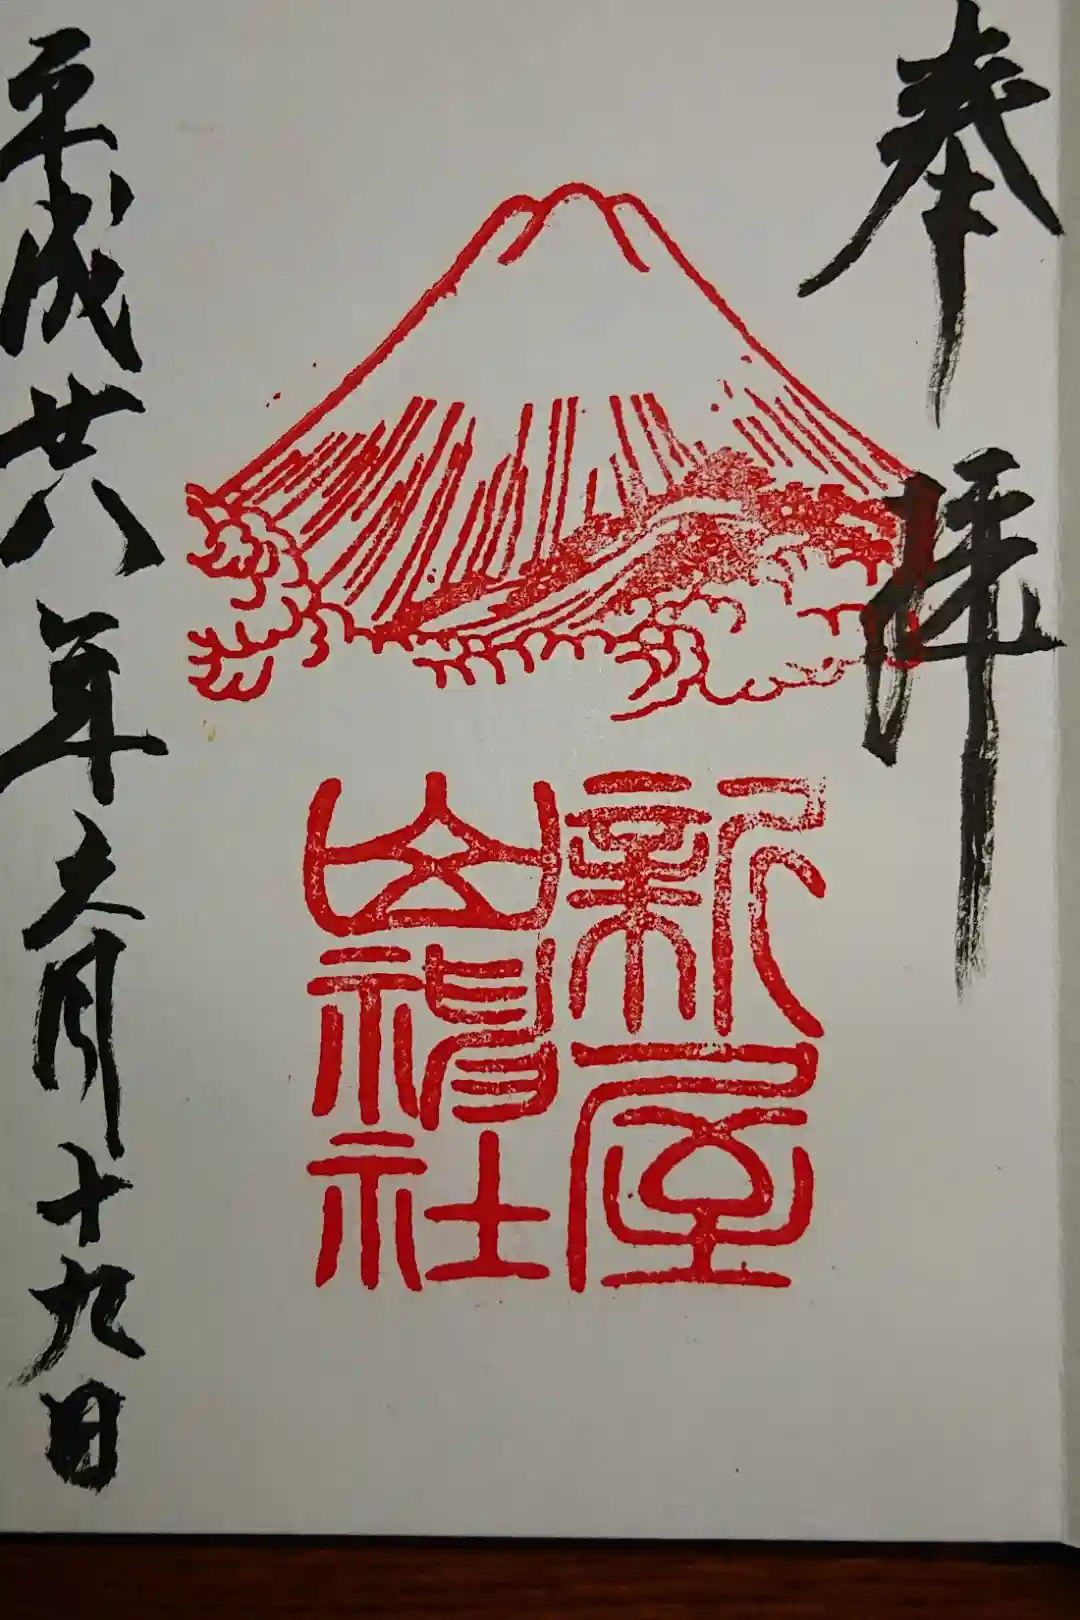 奉拝
新屋
山神社
平成廿八年六月十九日